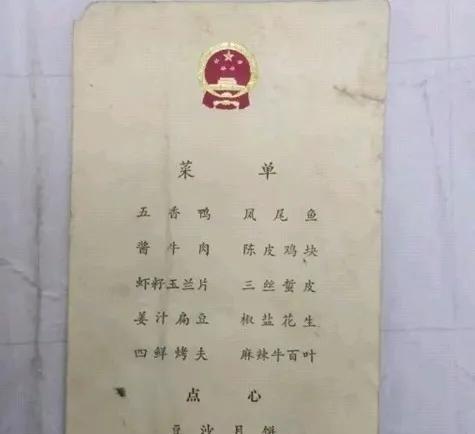 菜单
五香鸭 凤尾鱼
酱牛肉 陈皮鸡块
虾籽玉兰片 三丝蜇皮
姜汁扁豆 椒盐花生
四鲜烤夫 麻辣牛百叶
点心
豆沙月饼